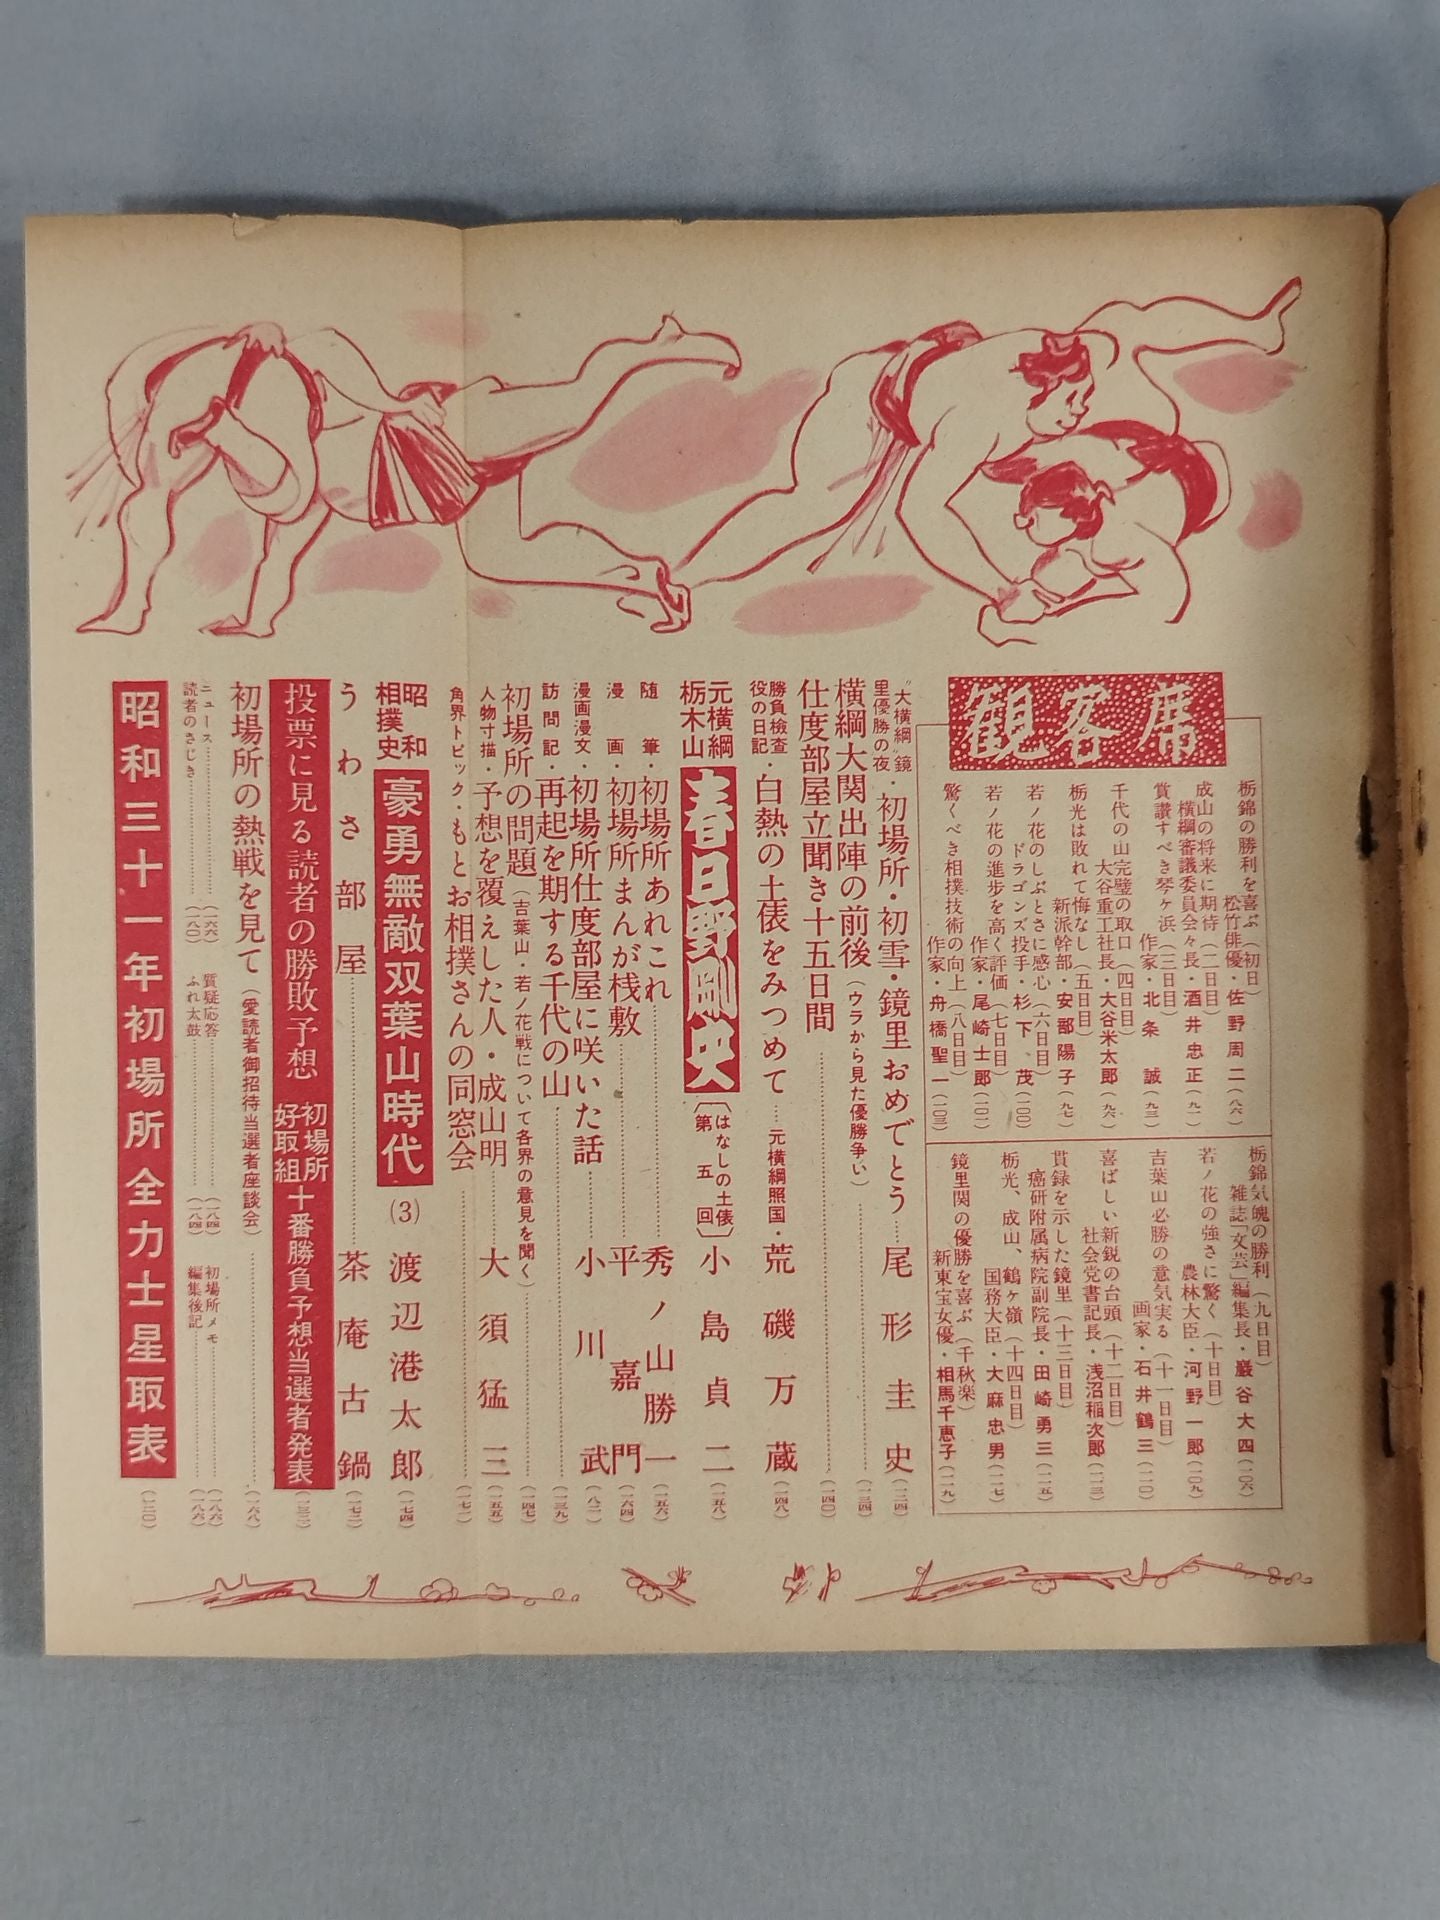 観客席
栃錦の勝利を喜ぶ(初日)
松竹俳優・佐野周二(八六)
成山の将来に期待(二日目)
横綱審議委員会々長・酒井忠正(九一)
賞讃すべき琴ヶ浜(三日目)
作家・北条誠(九三)
千代の山完璧の取口(四日目)
大谷重工社長・大谷米太郎(九六)
栃光は敗れて悔なし(五日目)
新派幹部・安部陽子(九七)
若ノ花のしぶとさに感心(六日目)
ドラゴンズ投手・杉下茂(一〇〇)
若ノ花の進歩を高く評価(七日目)
作家・尾崎士郎(一〇一)
驚くべき相撲技術の向上(八日目)
作家・舟橋聖一(一〇三)
栃錦気魄の勝利(九日目)
雑誌「文芸」編集長・巌谷大四(一〇六)
若ノ花の強さに驚く(十日目)
農林大臣・河野一郎(一〇九)
吉葉山必勝の意気実る(十一日目)
画家・石井鶴三(一一〇)
喜ばしい新鋭の台頭(十二日目)
社会党書記長・浅沼稲次郎(一一三)
貫録を示した鏡里(十三日目)
癌研附属病院副院長・田崎勇三(一一五)
栃光、成山、鶴ヶ嶺(十四日目)
国務大臣・大麻忠男(一一七)
鏡里関の優勝を喜ぶ(千秋楽)
新東宝女優・相馬千恵子(一一九)
"大横綱"鏡里優勝の夜・初場所・初雪・鏡里おめでとう……尾形圭史(一二四)
横綱大関出陣の前後(ウラから見た優勝争い)……(一三四)
仕度部屋立聞き十五日間……(一四〇)
勝負検査役の日記・白熱の土俵をみつめて……元横綱照国・荒磯万蔵(一四八)
元横綱栃木山 春日野剛央〔はなしの土俵第五回〕小島貞二(一五八)
随筆・初場所あれこれ……秀ノ山勝一(一五六)
漫画・初場所まんが桟敷……平嘉門(一六四)
漫画漫文・初場所仕度部屋に咲いた話……小川武(八二)
訪問記・再起を期する千代の山……(一三九)
初場所の問題(吉葉山・若ノ花戦について各界の意見を聞く)……(一四七)
人物寸描・予想を覆えした人・成山明……大須猛三(一五五)
角界トピック・もとお相撲さんの同窓会……(一七一)
昭和相撲史 豪勇無敵双葉山時代(3)渡辺港太郎(一七四)
うわさ部屋……茶庵古鍋(一七二)
投票に見る読者の勝敗予想 初場所好取組十番勝負予想当選者発表(一三二)
初場所の熱戦を見て(愛読者御招待当選者座談会)……(一六八)
ニュース……(一六六) 質疑応答……(一八四) 初場所メモ……(一八六)
読者のさじき……(一八〇) ふれ太鼓……(一八四) 編集後記……(一八六)
昭和三十一年初場所全力士星取表(一二〇)